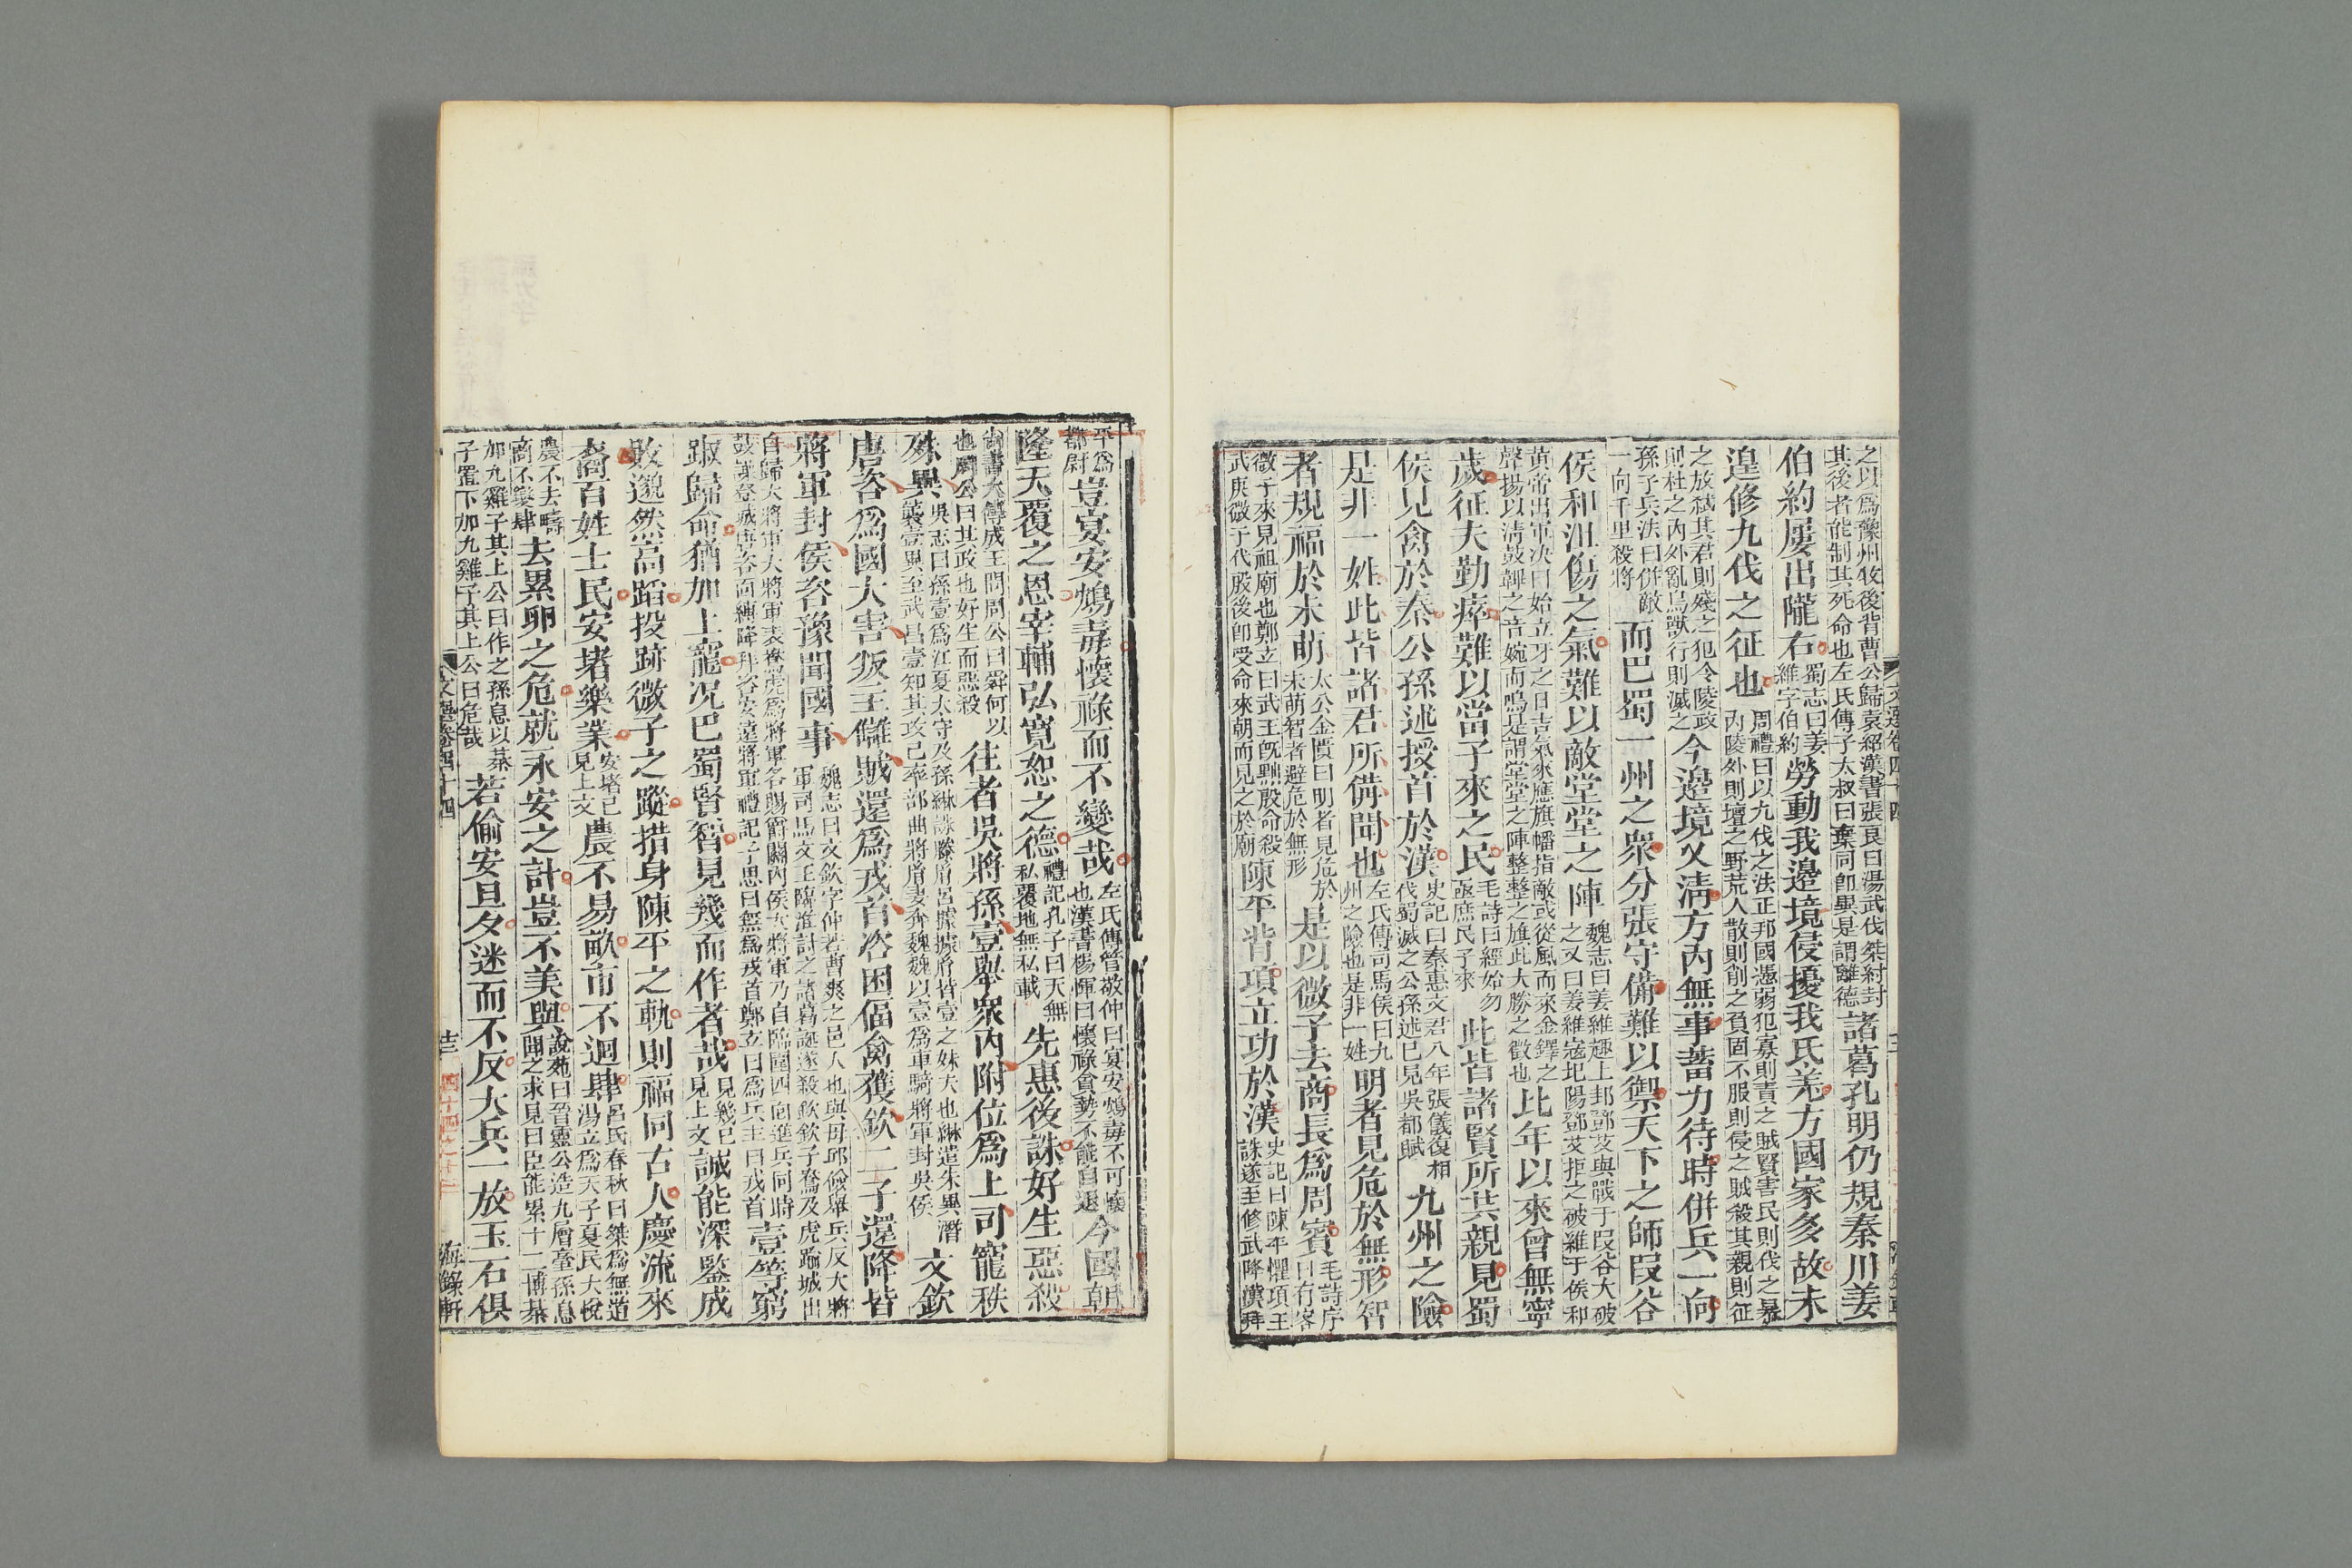 之以爲豫州牧後背曹公歸袁紹漢書張良曰湯武伐桀紂封其後者能制其死命也左氏傳子太叔曰棄同卽異是謂離德諸葛孔明仍規秦川姜
伯約屢出隴右蜀志曰姜維字伯約勞動我邊境侵擾我氐羌方國家多故未
遑修九伐之征也周禮曰以九伐之法正邦國憑弱犯寡則責之賊賢害民則伐之暴內陵外則壇之野荒人散則削之負固不服則侵之賊殺其親則征
之放弑其君則殘之犯令陵政則杜之內外亂鳥獸行則滅之今邊境乂淸方內無事蓄力待時併兵一向
孫子兵法曰併敵一向千里殺將而巴蜀一州之衆分張守備難以禦天下之師段谷
侯和沮傷之氣難以敵堂堂之陣魏志曰姜維趣上邽鄧艾與戰于段谷大破之又曰姜維寇洮陽鄧艾拒之破維于侯和
黃帝出軍决曰始立牙之日吉氣來應旗幡指敵或從風而來金鐸之聲揚以淸鼓鞞之音婉而鳴是謂堂堂之陣整整之旗此大勝之徵也比年以來曾無寧
歲征夫勤瘁難以當子來之民毛詩曰經始勿亟庶民子來此皆諸賢所共親見蜀
侯見禽於秦公孫述授首於漢史記曰秦惠文君八年張儀復相伐蜀滅之公孫述已見吳都賦九州之險
是非一姓此皆諸君所備聞也左氏傳司馬侯曰九州之險也是非一姓明者見危於無形智
者規福於未萌太公金匱曰明者見危於未萌智者避危於無形是以微子去商長爲周賓毛詩序曰有客
微子來見祖廟也鄭玄曰武王旣黜殷命殺武庚微子代殷後卽受命來朝而見之於廟陳平背項立功於漢史記曰陳平懼項王誅遂至修武降漢拜
平爲都尉豈宴安鴆毒懷祿而不變哉左氏傳管敬仲曰宴安鴆毒不可懷也漢書楊惲曰懷祿貪勢不能自退今國朝
隆天覆之恩宰輔弘寬恕之德禮記孔子曰天無私覆地無私載先惠後誅好生惡殺
尙書大傳成王問周公曰舜何以也周公曰其政也好生而惡殺往者吳將孫壹舉衆內附位爲上司寵秩
殊異吳志曰孫壹爲江夏太守及孫綝誅滕胤呂據據胤皆壹之妹夫也綝遣朱異潛襲壹異至武昌壹知其攻己率部曲將胤妻奔魏魏以壹爲車騎將軍封吳侯文欽
唐咨爲國大害叛主讎賊還爲戎首咨困偪禽獲欽二子還降皆
將軍封侯咨豫聞國事魏志曰文欽字仲若曹爽之邑人也與毋邱儉舉兵反大將軍司馬文王臨淮討之諸葛誕遂殺欽欽子鴦及虎踰城出
自歸大將軍大將軍表鴦虎爲將軍各賜爵關內侯大將軍乃自臨圍四面進兵同時鼓譟登城唐咨面縛降拜咨安遠將軍禮記子思曰無爲戎首鄭玄曰爲兵主曰戎首壹等窮
踧歸命猶加上寵況巴蜀賢智見幾而作者哉見幾已見上文誠能深鑒成
敗邈然高蹈投跡微子之蹤措身陳平之軌則福同古人慶流來
裔百姓士民安堵樂業安堵已見上文農不易畝市不迴肆呂氏春秋曰桀爲無道湯立爲天子夏民大悅
農不去疇商不變肆去累卵之危就永安之計豈不美與說苑曰晉靈公造九層臺孫息聞之求見曰臣能累十二博棊
加九雞子其上公曰作之孫息以棊子置下加九雞子其上公曰危哉若偷安旦夕迷而不反大兵一放玉石俱
文選卷四十四
十三
海錄軒